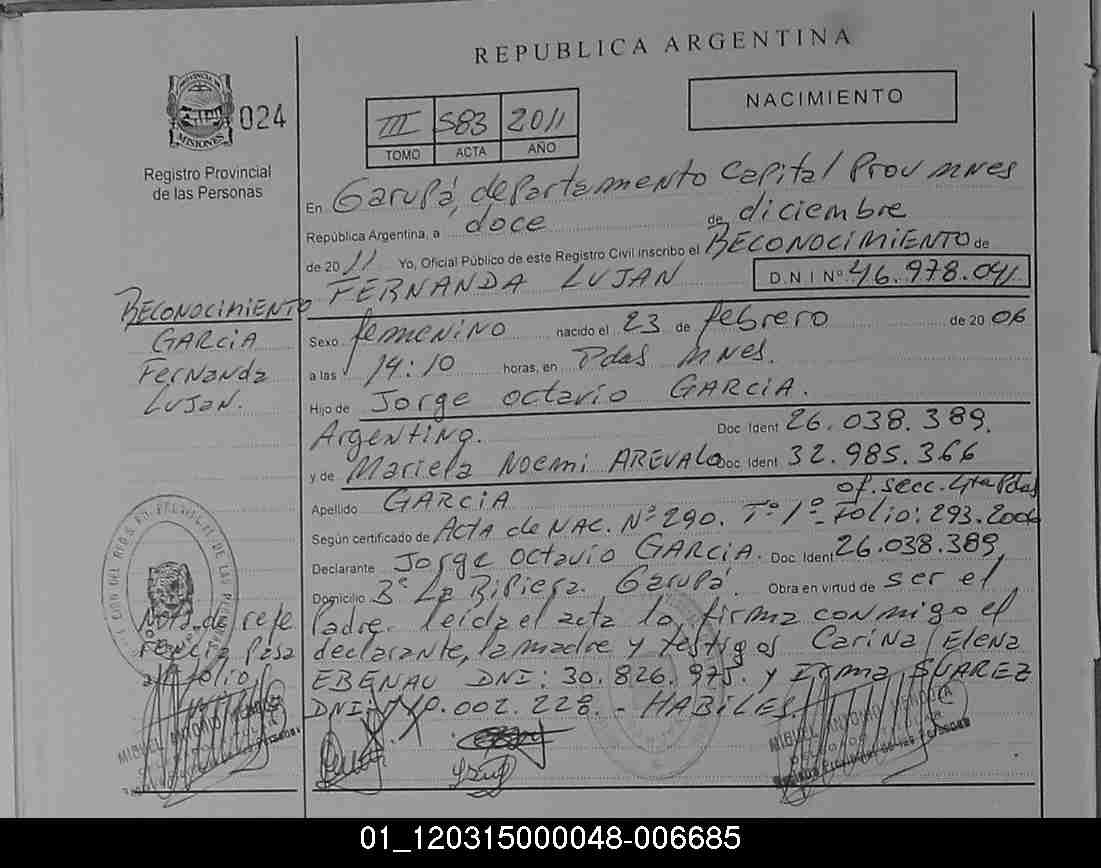 REPUBLICA ARGENTINA
PROVINCIA DE
MISIONES
024
Registro Provincial
de las Personas
III 583 2011
TOMO ACTA AÑO
NACIMIENTO
En Garupá, departamento Capital Prov mnes
República Argentina, a doce de diciembre
de 2011 Yo, Oficial Público de este Registro Civil inscribo el RECONOCIMIENTO de
FERNANDA LUJAN D.N.I Nº 46.978.041
RECONOCIMIENTO
GARCIA
Fernanda
LUJAN.
Sexo femenino nacido el 23 de febrero de 2006
a las 14:10 horas, en Pdas mnes.
Hijo de Jorge octavio GARCIA.
Argentino. Doc. Ident 26.038.389.
y de Mariela Noemi AREVALO Doc. Ident 32.985.366
Apellido GARCIA of. secc. 4ta Pdas
Según certificado de Acta de NAC. Nº 290. Tº 1º - Folio: 293. 2006
Declarante Jorge octavio GARCIA. Doc. Ident 26.038.389
Domicilio Bº La Ribiera. Garupá. Obra en virtud de ser el
padre. leída el acta la firma conmigo el
declarante, la madre y testigos Carina Elena
EBENAU DNI: 30.826.975. y Irma SUAREZ
DNI: 002.228. - HABILES.
Nota de refe
rencia pasa
a folio
MIGUEL ANTONIO
MIGUEL ANTONIO
01_120315000048-006685